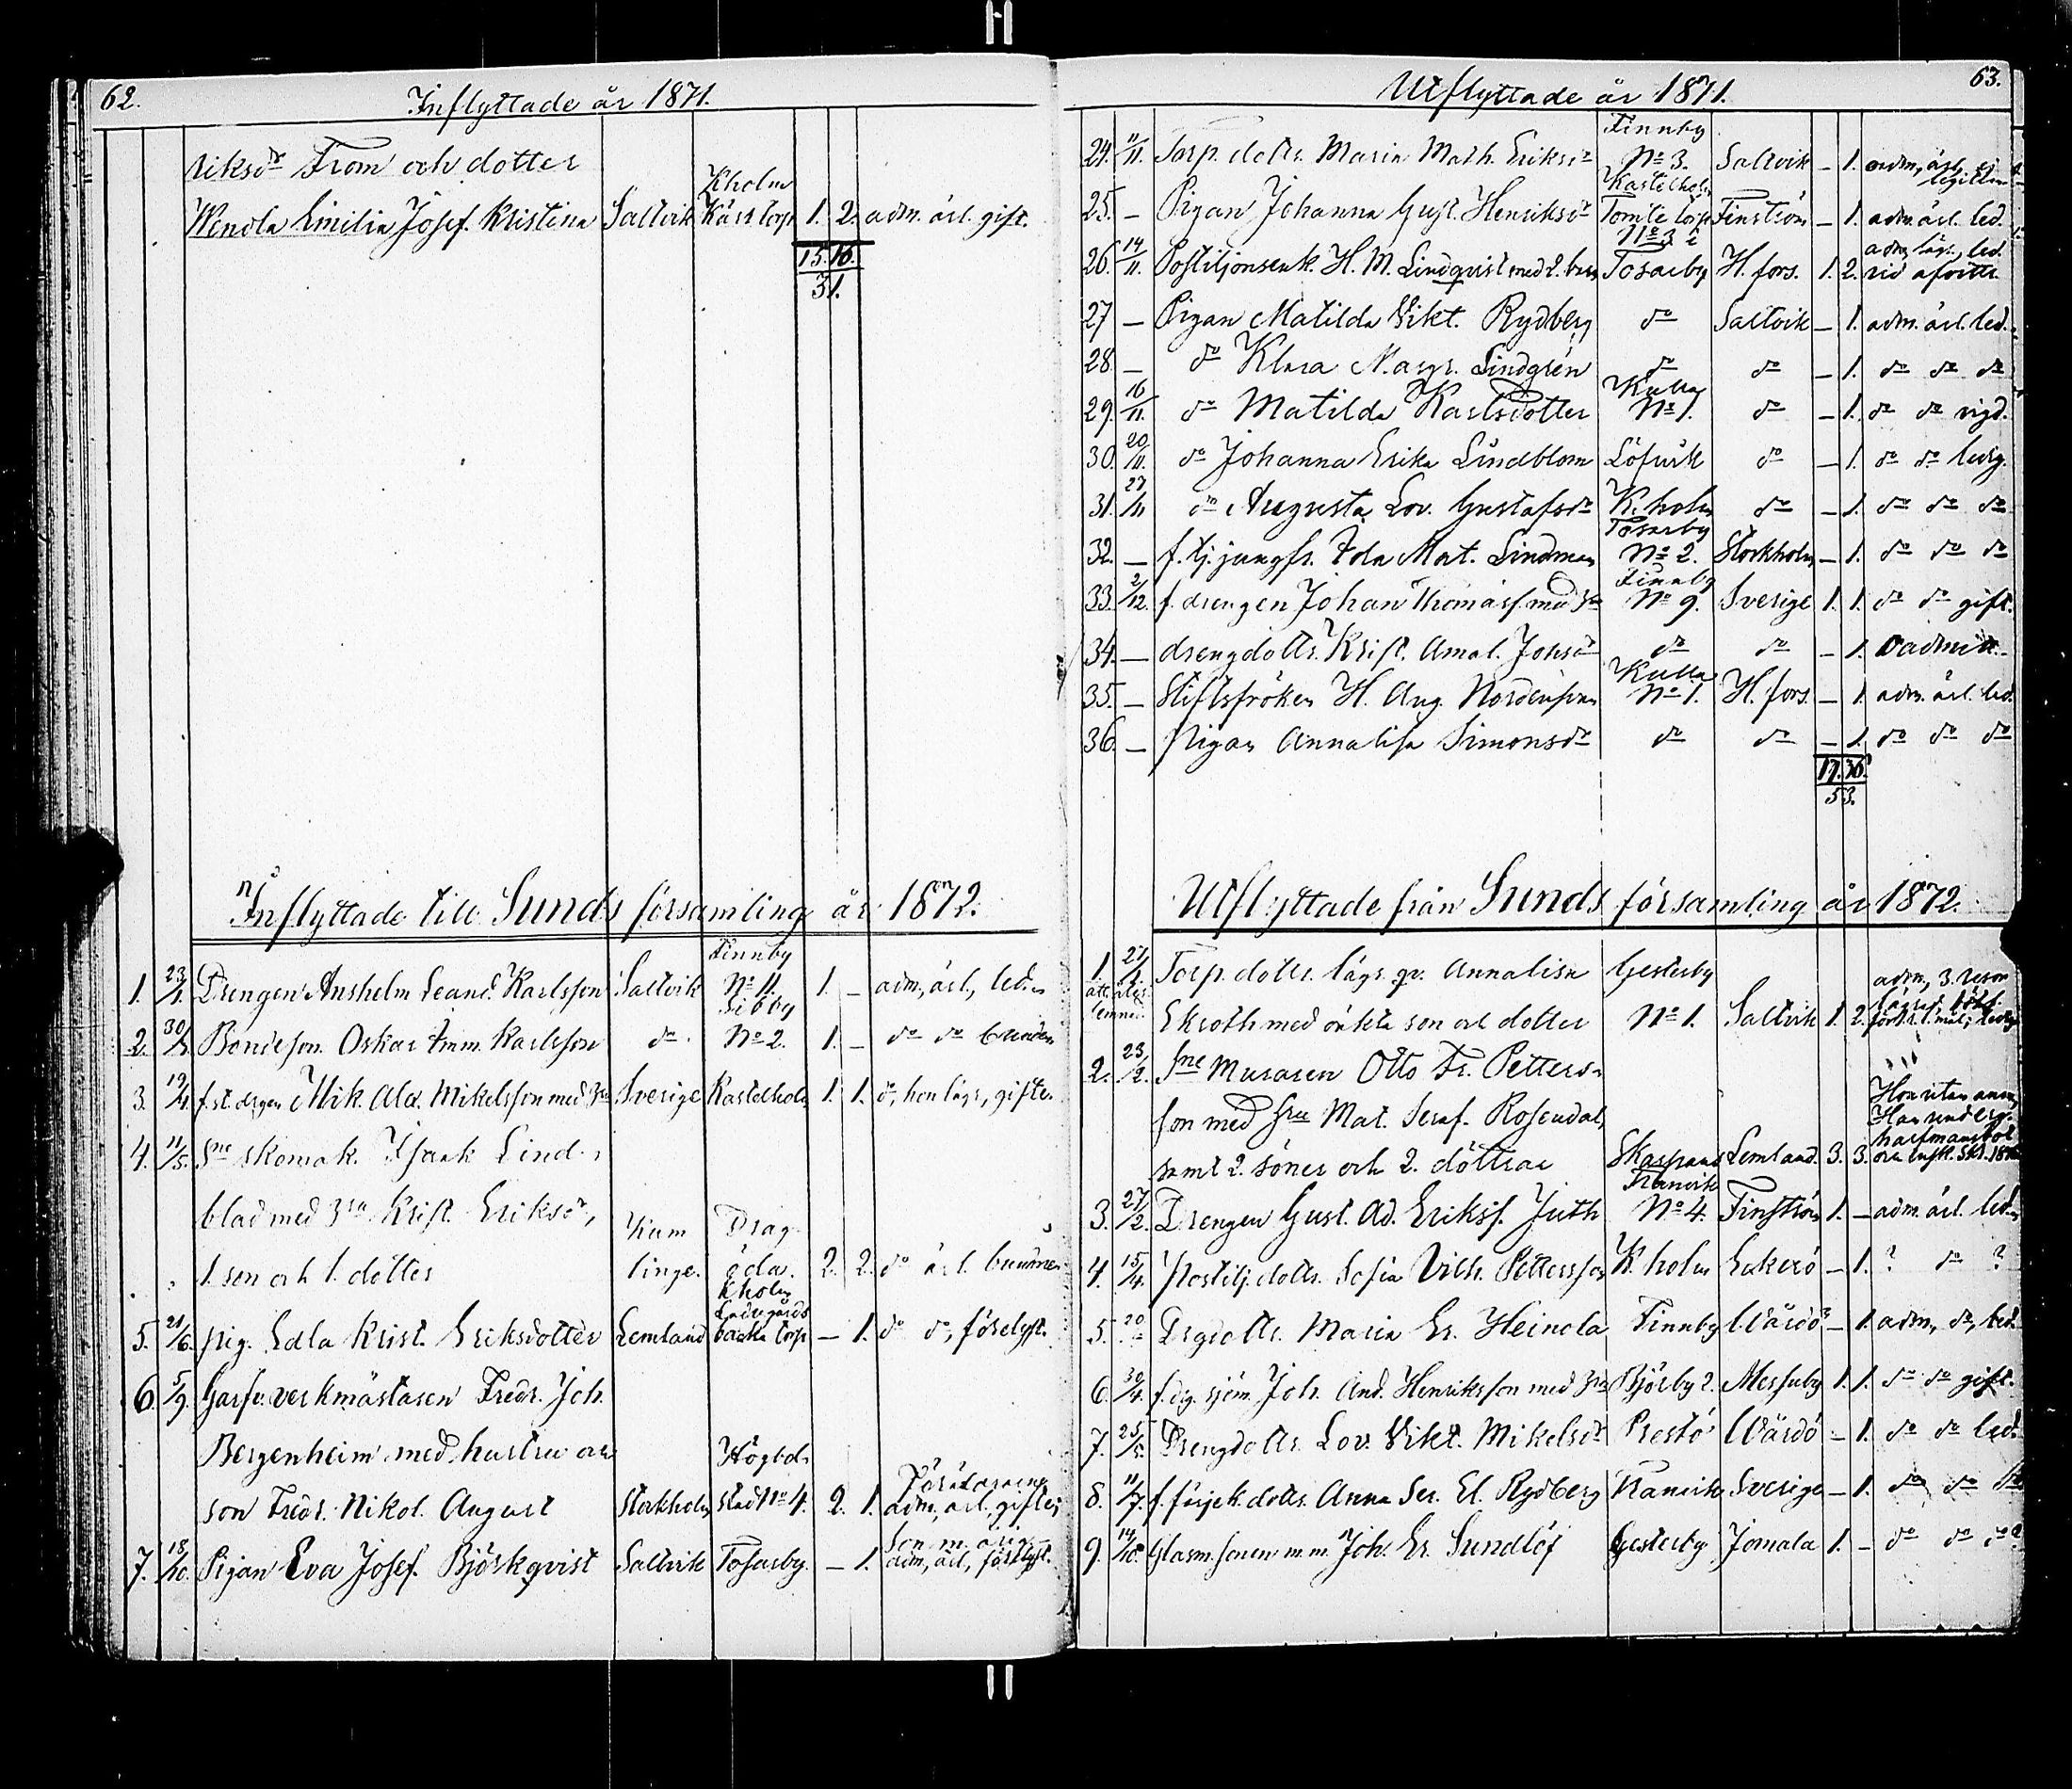 62.
Inflyttade år 1871.
riksdr From och dotter
Wendla Emilia Josef. Kristina Saltvik Kholm Kärr torp 1. 2. adm. ärl. gift.
15. 16.
31.
Inflyttade till Sunds församling år 1872.
1. 23/1. Drengen Anshelm Leand. Karlsson Saltvik Finnby No 11. 1. – adm, ärl, led.
2. 30/ Bondeson. Oskar Imm. Karlsson do. Sibby No 2. 1. – do do
3. 19/4 f. st. drgen Mik. Ald. Mikelsson med Sverige Kastelholm 1. 1. do, hon lägs, gifte.
4. 11/5. skomak. Isaak Lind-
blad med Krist. Eriksdr,
1. son och 1. dotter Kumlinge. Drag-öda. 2. 2. do ärl.
5. 21/6. pig. Edla Krist. Eriksdotter Lemland Kholm Ladugårds backa torp – 1. do do, förelyst.
6. 5/9. Garfv. verkmästaren Fredr. Joh.
Bergenheim med hustru och Högbol-
son Fredr. Nikol. August Stockholm stad No 4. 2. 1. adm, ärl, gifte,
7. 18/10. Pigan Eva Josef. Björkqvist Saltvik Tosarby. – 1. adm, ärl, förelyst.
63.
Utflyttade år 1871.
24. 11/11. Torp. dottr. Maria Math. Eriksdr Finnby No 3. Saltvik – 1. adm, ärl,
25. – Pigan Johanna Gust. Henriksdr Kastelholm Tomte torp Finström – 1. adm. ärl. led.
26. 14/11. Postiljonsenk. H. M. Lindqvist med 2. barn No 3 Tosarby H. fors. 1. 2.
27 – Pigan Matilda Vikt. Rydberg do Saltvik – 1. adm. ärl. led.
28. – do Klara Margr. Lindgrén do do – 1. do do do
29. 16/11. do Matilda Karlsdotter Kulla No 1. do – 1. do do vigd.
30. 20/11. do Johanna Erika Lindblom Löfvik do – 1. do do ledig.
31. 27/11 do Augusta Lov. Gustafsdr K. holm do – 1. do do do
32. – f. tj. jungfr. Ida Mat. Lindman Tosarby No 2. Stockholm – 1. do do do
33. 2/12. f. drengen Johan Thomass. med Finnby No 9. Sverige 1. 1. do do gift.
34. – drengdottr. Krist. Amal. Johsdr do do – 1. oadmitt.
35. – Stiftsfröken H. Aug. Nordenspan Kulla No 1. H. fors. – 1. adm. ärl. led.
36. – pigan Annalisa Simonsdr do do – 1. do do do
17. 36.
53.
Utflyttade från Sunds församling år 1872.
1. 27/1. Torp. dottr. lägr. qv. Annalisa Gesterby adm, 3.
Ekroth med oäkta son och dotter No 1. Saltvik 1. 2.
2. 23/2. Muraren Otto Fr. Petters-
son med Mat. Seraf. Rosendal,
samt 2. söner och 2. döttrar Skarpans Lemland. 3. 3.
3. 27/2. Drengen Gust. Ad. Erikss. Juth Tranvik No 4. Finström 1. – adm. ärl. led.
4. 15/4. Postilj. dottr. Sofia Vilh. Pettersson K. holm Eckerö – 1. ? do ?
5. 20 Drgdottr. Maria Er. Heinola Finnby Wårdö – 1. adm, do, led.
6. 30/4. f. dg. sjöm. Joh. And. Henriksson med Björby 2. Messuby 1. 1. do do gift.
7. 25/5. Drengdottr. Lov. Vikt. Mikelsdr Prestö Wårdö – 1. do do led.
8. 11/7. f. färjek. dottr. Anna Ser. El. Rydberg Tranvik Sverige – 1. do do do
9. 14/10. Glasm. sonen m.m. Joh. Er. Sundlöf Gesterby Jomala 1. – do do do